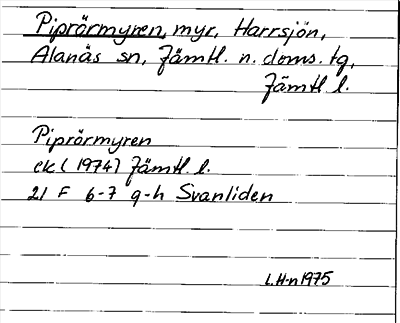 Piprörmyren, myr, Harrsjön,
Alanäs sn, Jämtl. n. doms. tg,
Jämtl l.
Piprörmyren
ek (1974) Jämtl. l.
21 F 6-7 g-h Svanliden
L.H-n 1975